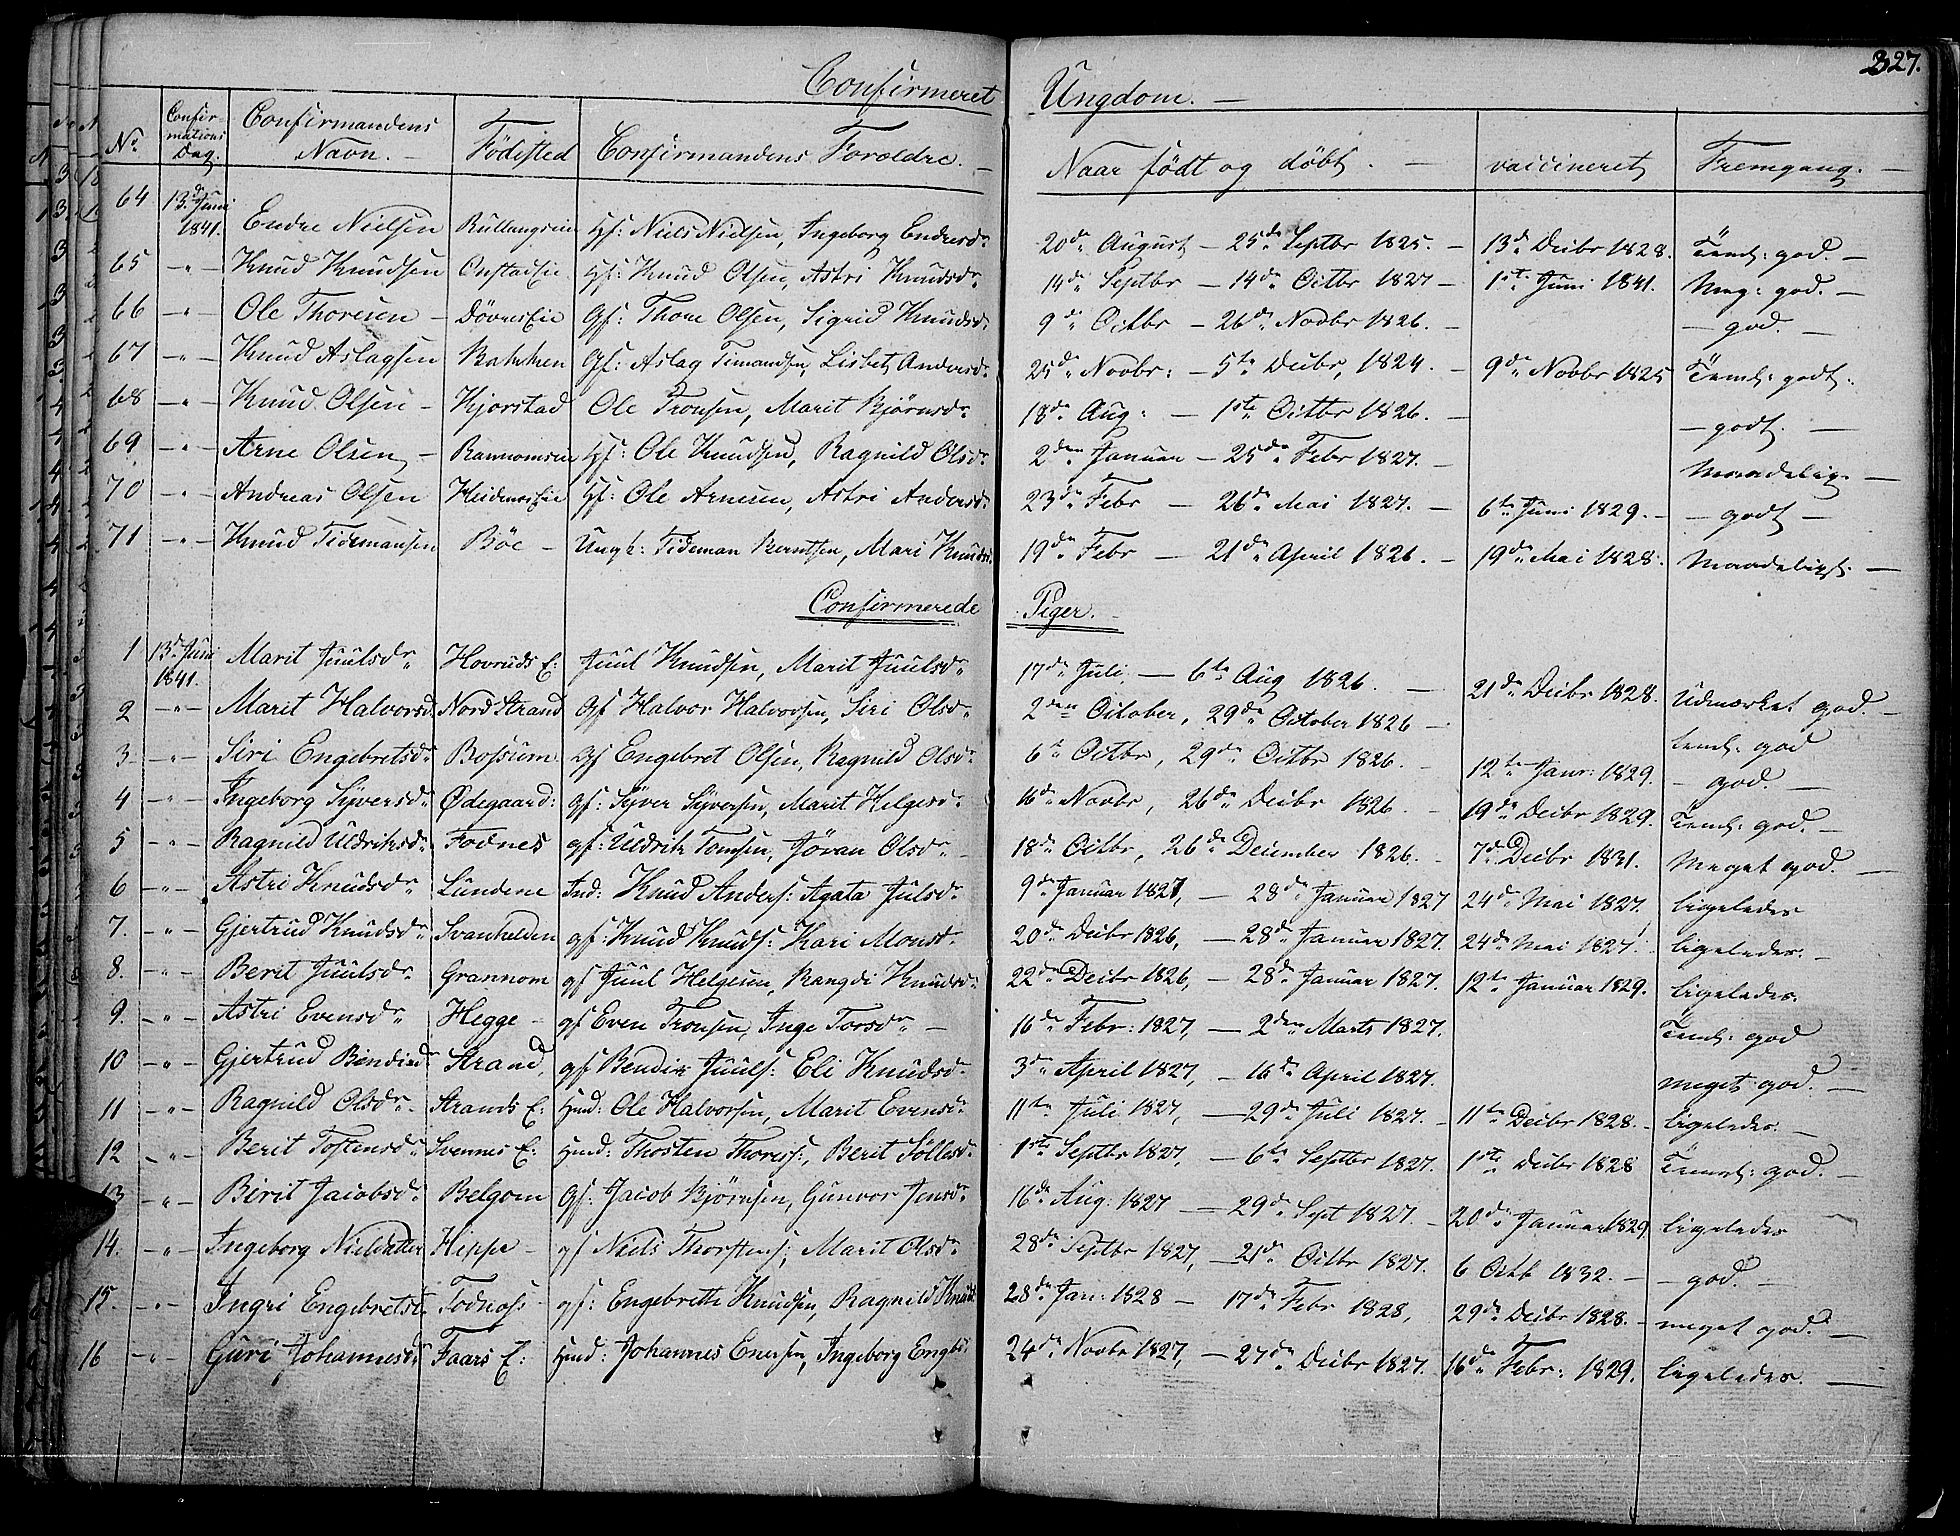 327.
Confirmeret Ungdom. —
No Confirmations Dag. Confirmandens Navn. — Födisted Confirmandens Foroldre. — Naar födt og döbt. — vaccineret Fremgang. —
64 13d Juni 1841. Endre Nielsen Rullangseie Hf: Niels Nielsen, Ingeborg Endresdr 20de August — 25de Septbr 1825. — 13de Decbr 1828. Teml: god. —
65 — " — Knud Knudsen Onstadeie Hf: Knud Olsen, Astri Knudsdr 14de Septbr — 14de Octbr 1827 — 1ste Juni 1841. Meg: god. —
66 — " — Ole Thoresen — Dövreseie Gf: Thore Olsen, Sigrid Knudsdr 9de Octbr — 26de Novbr 1826. — — god. —
67 — " — Knud Aslagsen Bakken Gf: Aslag Timandsen, Lisbet Andersdr 25de Novbr: — 5te Decbr, 1824. — 9de Novbr 1825 Teml: godt.
68 — " — Knud Olsen — Kjorstad Ole Tronsen, Marit Björnsdr 18de Aug: — 1ste Octbr 1826. — — godt. —
69 — " — Arne Olsen — Rannomseie Hf: Ole Knudsen, Ragnild Olsdr 2den Januar — 25de Febr 1827. — Maadelig. —
70 — " — Andreas Olsen Heidenseie Hf: Ole Arnesen, Astri Andersdr 23de Febr — 26de Mai 1827. — 6te Juni 1829. — — godt —
71 — " — Knud Tidemansen Böe — Ungk: Tideman Berntsen, Mari Knudsdr 19de Febr — 21de April 1826. — 19de Mai 1828. Maadeligt. —
Confirmerede Piger. —
1 13d Juni 1841. Marit Juulsdr Hovruds E: Juul Knudsen, Marit Juulsdr 17de Juli — 6te Aug 1826. — 21de Decbr 1828. Udmærket god. —
2 — " — Marit Halvorsd. Nord Strand Gf Halvor Halvorsen, Siri Olsdr 2den October, 29de October 1826 — teml: god
3 — " — Siri Engebretsdr Bossum Gf Engebret Olsen, Ragnild Olsdr 6te Octbr, 29de Octbr 1826. — 12te Janr: 1829. — god. —
4 — " — Ingeborg Syversdr Ødegaard: gf: Syver Syversen, Marit Helgesdr 16de Novbr, 26de Decbr 1826. — 19de Decbr 1829. Teml: god. —
5 — " — Ragnild Uldriksdr Fodnes gf: Uldrik Tomsen, Jöran Olsdr — 18de Octbr, 26de December 1826. — 7de Decbr 1831. Meget god. —
6 — " — Astri Knudsdr Lundene Ind: Knud Anders: Agata Julsdr 9de Januar 1827, — 28de Januar 1827 24de Mai 1827. ligeledes
7. — " — Gjertrud Knudsdr Svanhelden gf: Knud Knuds: Kari Monsdr 20de Decbr 1826, — 28de Januar 1827. 24de Mai 1827. ligeledes. —
8. — " — Berit Juulsdr Grannom gf Juul Helgesen, Rangdi Knudsdr 22de Decbr 1826, — 28de Januar 1827. 12te Januar 1829. ligeledes.
9. — " — Astri Evensdr Hegge — gf Even Tronsen, Inge Torsdr — 16de Febr: 1827, — 2den Marts 1827. Teml: god
10 — " — Gjertrud Bendixdr Strand, gf Bendix Juuls: Eli Knudsdr 3de April 1827, — 16de April 1827. meget god. —
11 — " — Ragnild Olsdr. Strands E: Hmd: Ole Halvorsen, Marit Evensdr 11te Juli 1827, — 29de Juli 1827. — 11te Decbr 1828. — ligeledes. —
12 — " — Berit Tostensdr Svennes E: Hmd: Thosten Thoress:, Berit Söllesdr 1ste Septbr 1827, — 6te Septbr 1827. 1ste Decbr 1828 Temml: god. —
13 — " — Birit Jacobsdr Belgom Gf: Jacob Björnsen, Gunvor Jensdr 16de Aug: 1827 — 29de Sept 1827. — 20de Januar 1829 ligeledes
14. — " — Ingeborg Nielsdatter Hippe — gf Niels Thorstens:, Marit Olsdr 28de Septbr 1827, — 21de Octbr 1827. 6 Octb 1832. — — god. —
15. — " — Ingri Engebretsd. Fodnæss — gf: Engebrett Knudsen, Ragnild Knudsd 28de Jan: 1828 — 17de Febr 1828, 29de Decbr 1828. — meget god. —
16 — " — Guri Johannesdr Faars E: Hmd: Johannes Enersen, Ingeborg Engbr: 24de Novbr 1827, — 27de Decbr 1827. 16de Febr: 1829. ligeledes. —